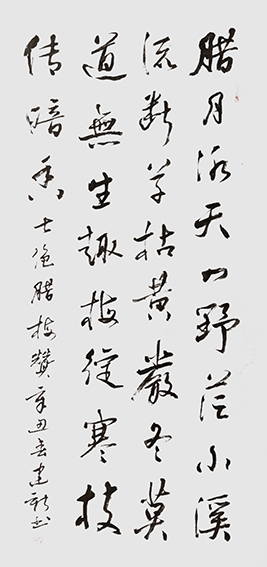 腊月冰天山野茫小溪
流断草枯黄嚴冬莫
道無生趣梅绽寒枝
传暗香七绝腊梅赞辛丑春建新书